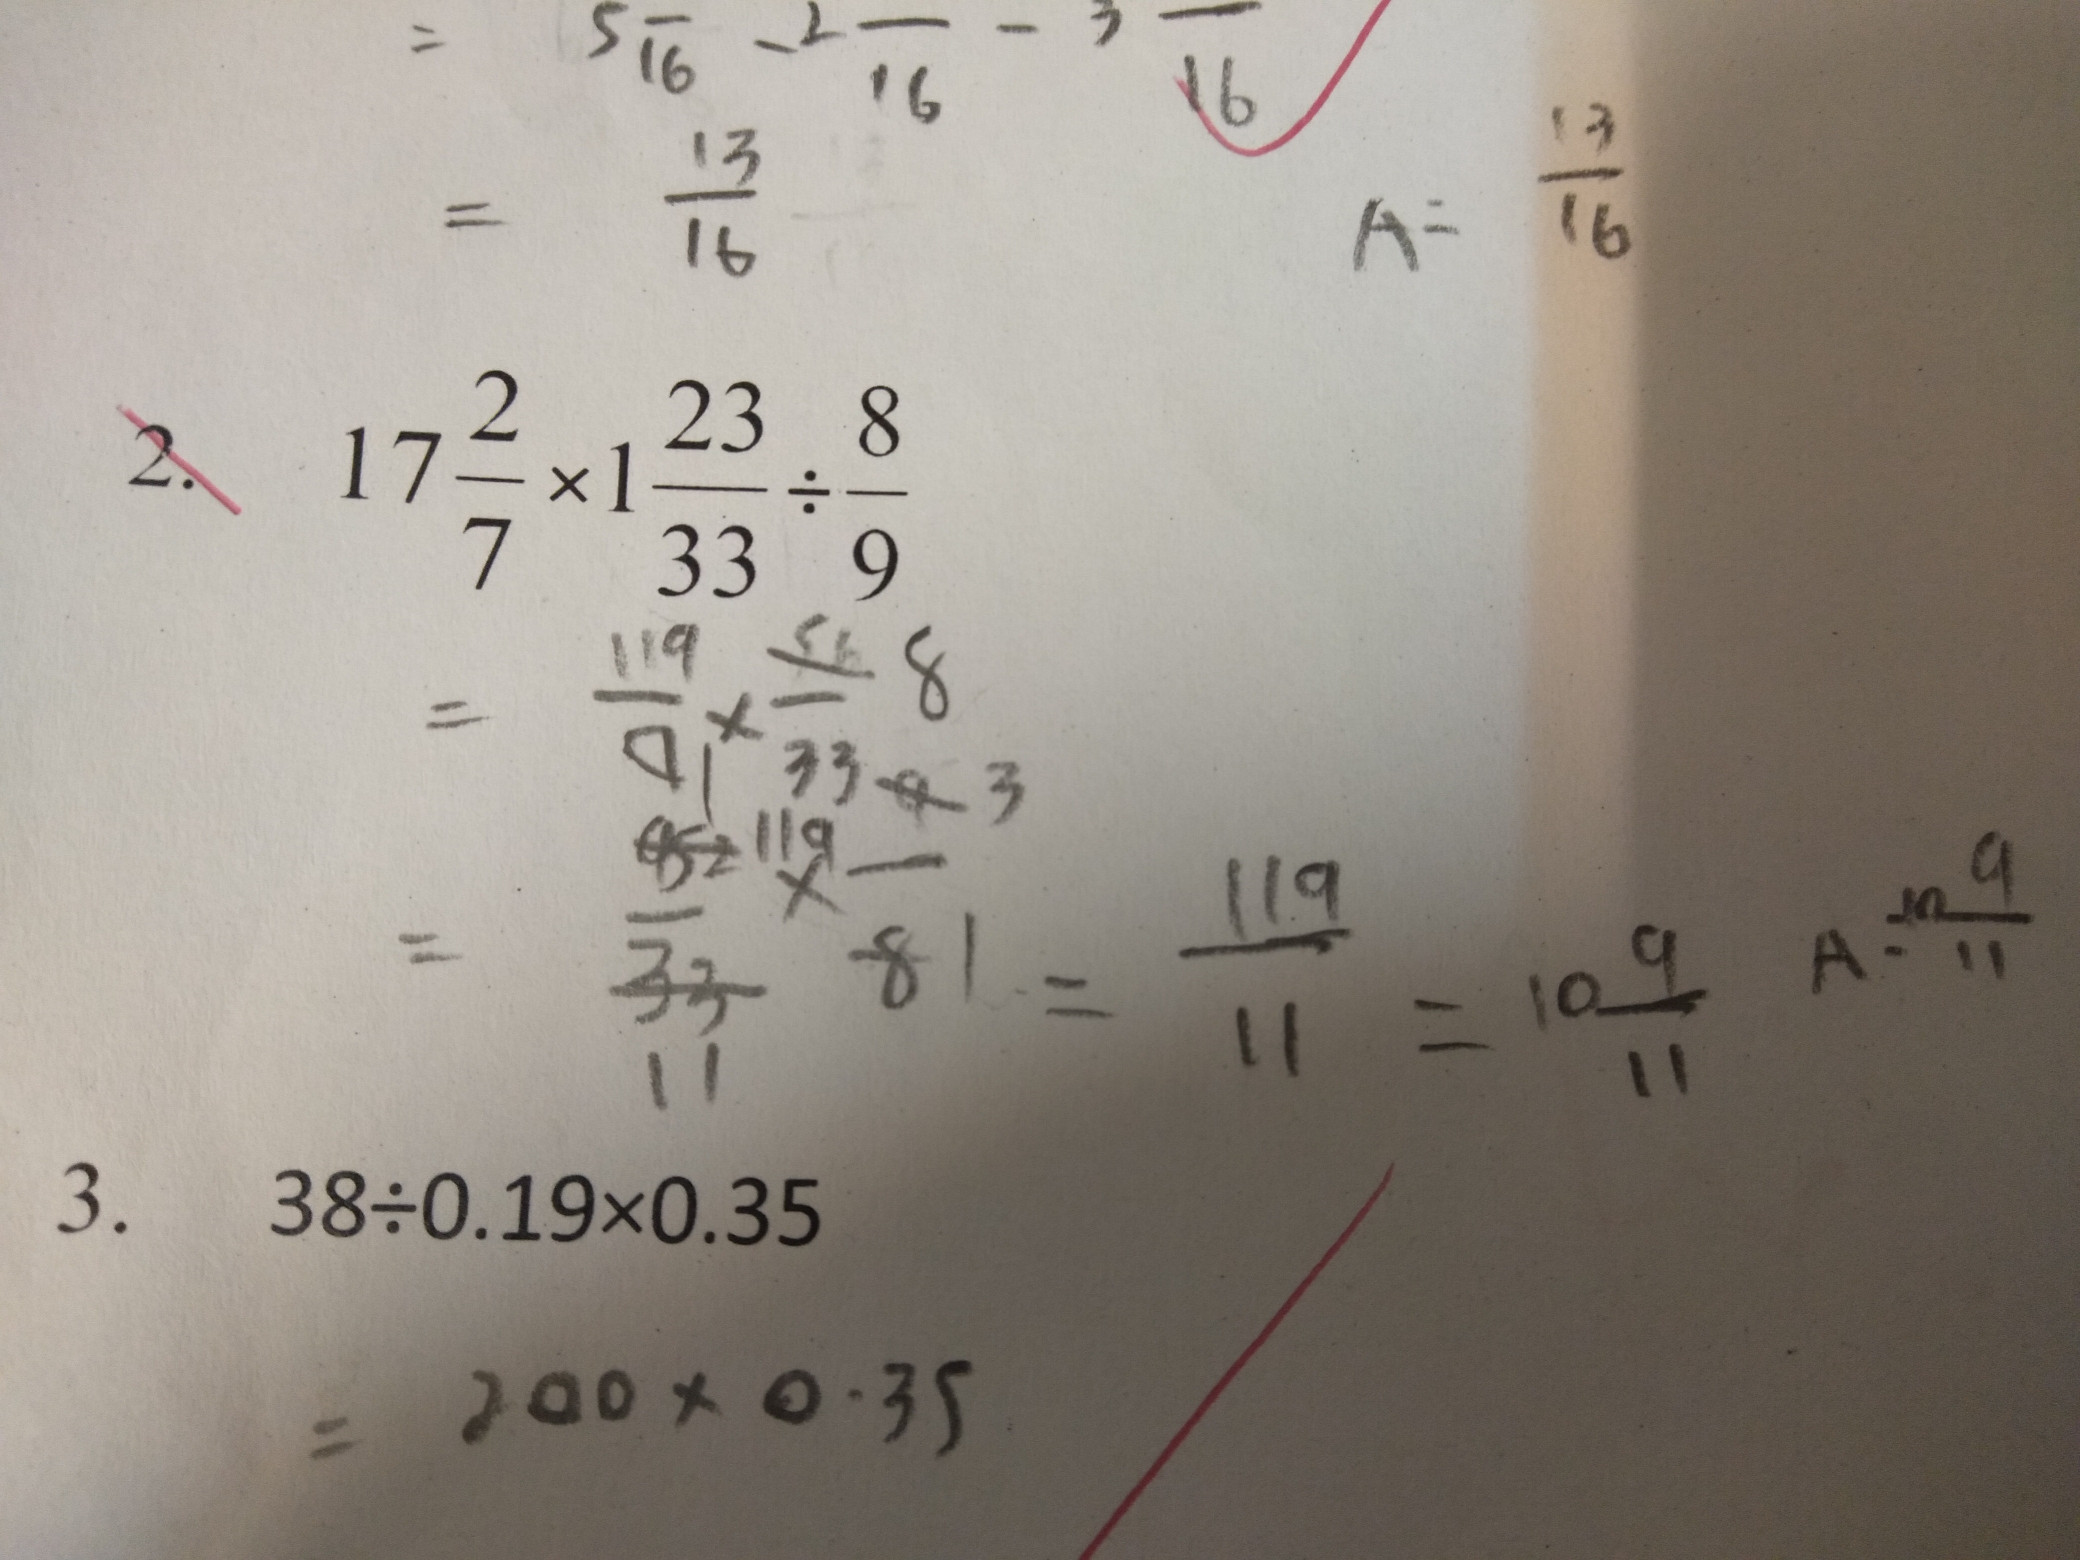 = 5 —/16 - 2 —/16 - 3 —/16
= 13/16 A = 13/16
2. 17 2/7 × 1 23/33 ÷ 8/9
= 119/7 1 × 56/33 8
= 119/33 11 × 3/8 1 = 119/11 = 10 9/11 A = 10 9/11
3. 38÷0.19×0.35
= 200 × 0.35